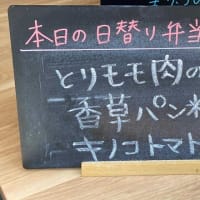 本日の日替り弁当
とりモモ肉の
香草パン粉
キノコトマト